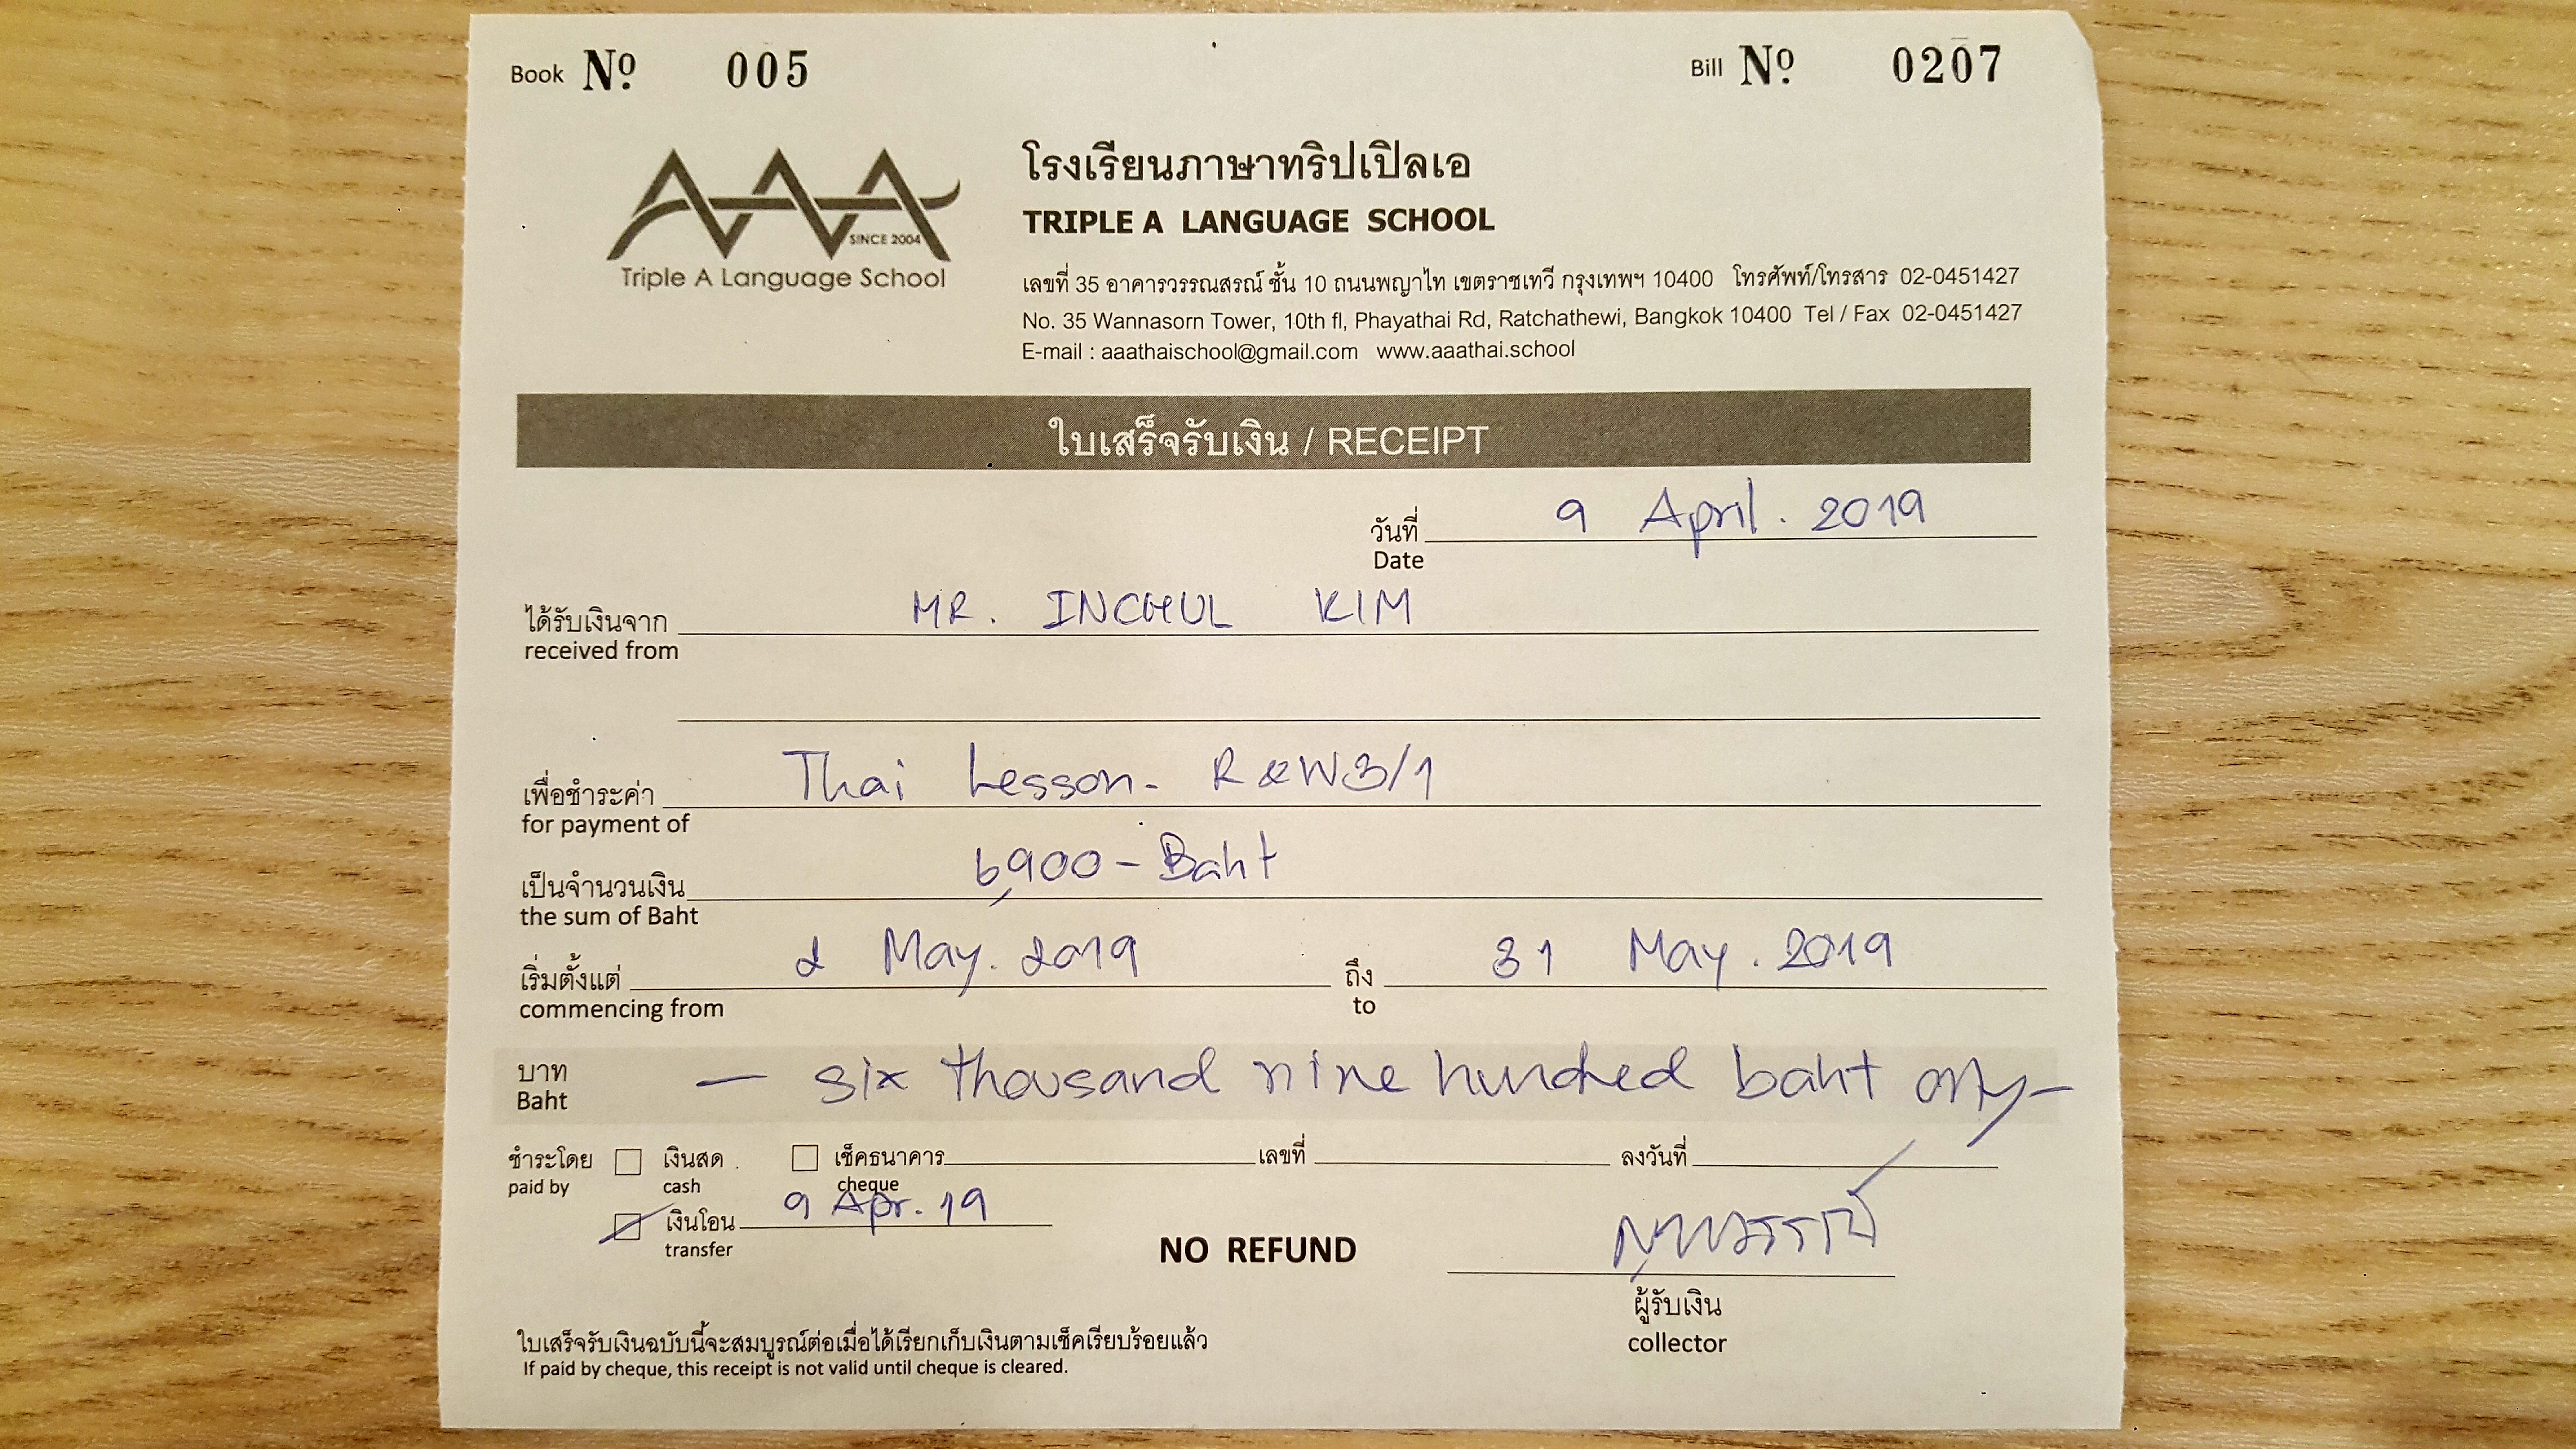 Book Nº 005 Bill Nº 0207
AAA
SINCE 2004
Triple A Language School
โรงเรียนภาษาทริปเปิลเอ
TRIPLE A LANGUAGE SCHOOL
เลขที่ 35 อาคารวรรณสรณ์ ชั้น 10 ถนนพญาไท เขตราชเทวี กรุงเทพฯ 10400 โทรศัพท์/โทรสาร 02-0451427
No. 35 Wannasorn Tower, 10th fl, Phayathai Rd, Ratchathewi, Bangkok 10400 Tel / Fax 02-0451427
E-mail : aaathaischool@gmail.com www.aaathai.school
ใบเสร็จรับเงิน / RECEIPT
วันที่ 9 April. 2019
Date
ได้รับเงินจาก MR. INCHUL KIM
received from
เพื่อชำระค่า Thai Lesson- R&W3/1
for payment of
เป็นจำนวนเงิน 6,900-Baht
the sum of Baht
เริ่มตั้งแต่ 2 May. 2019 ถึง 31 May. 2019
commencing from to
บาท — six thousand nine hundred baht only—
Baht
ชำระโดย เงินสด เช็คธนาคาร เลขที่ ลงวันที่
paid by cash cheque
เงินโอน 9 Apr. 19
transfer
NO REFUND
ผู้รับเงิน
collector
ใบเสร็จรับเงินฉบับนี้จะสมบูรณ์ต่อเมื่อได้เรียกเก็บเงินตามเช็คเรียบร้อยแล้ว
If paid by cheque, this receipt is not valid until cheque is cleared.